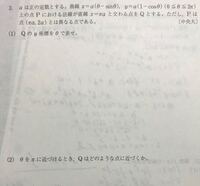 3. aは正の定数とする。曲線 x=a(θ−sinθ), y=a(1−cosθ) (0≦θ≦2π)
上の点Pにおける法線が直線 x=πa と交わる点をQとする。ただし、Pは
点(πa, 2a)とは異なる点である。 [中央大]
(1) Qのy座標をθで表せ。
(2) θをπに近づけるとき、Qはどのような点に近づくか。